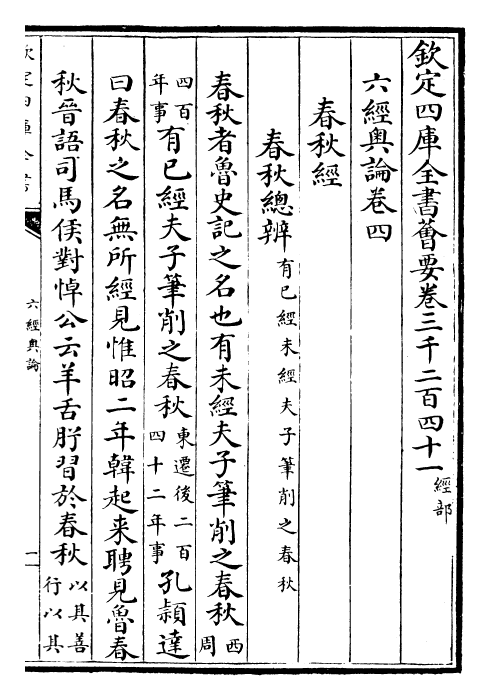 欽定四庫全書薈要卷三千二百四十一經部
六經奧論卷四
春秋經
春秋總辨有已經未經夫子筆削之春秋
春秋者魯史記之名也有未經夫子筆削之春秋西周
四百年事有已經夫子筆削之春秋東遷後二百四十二年事孔頴達
曰春秋之名無所經見惟昭二年韓起来聘見魯春
秋晉語司馬侯對悼公云羊舌肸習於春秋以其善行以其
六經奧論
一